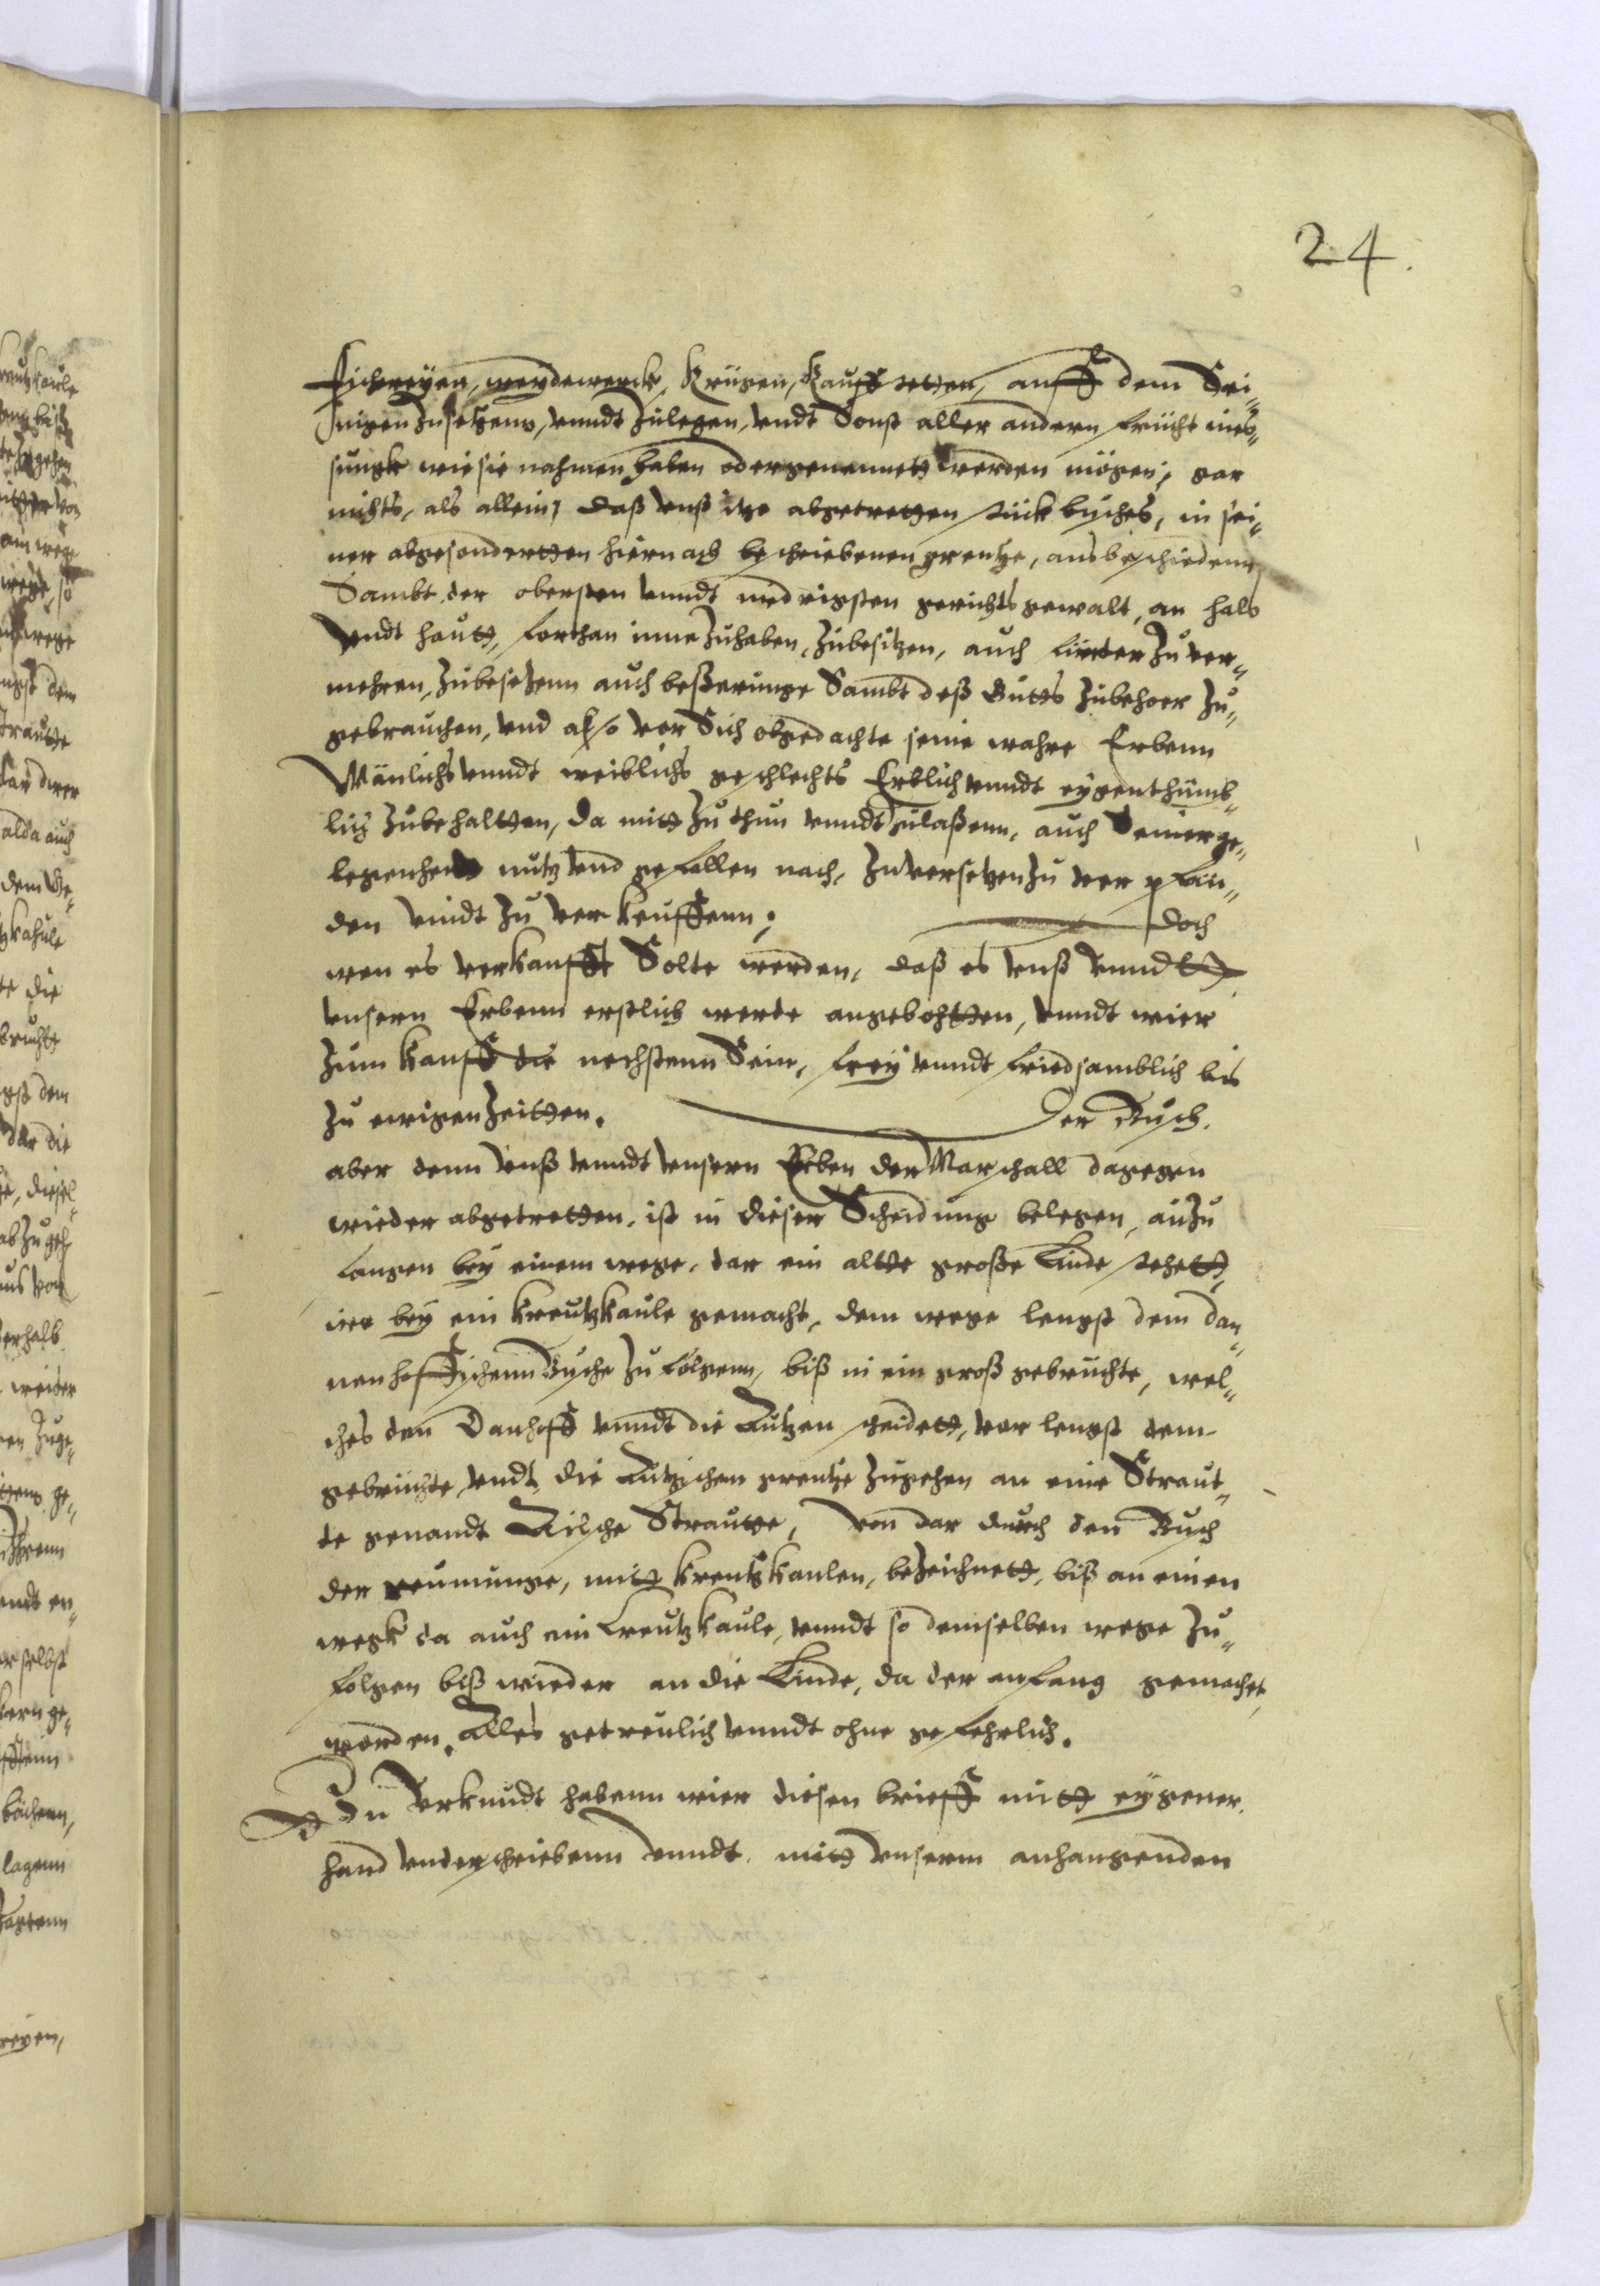 24.
Fischereyen, weydewerck, Krügen, Kauffstetten, auff dem Sei-
nigen Zusetzens, vnndt Zulegen, vndt Sonst aller andern frücht nies-
sungk wie sie nahmen haben oder genennett werden mögen, gar
nichts, als allein, daß vnß itze abgetretten stück busches, in sei-
ner abgesondertten hiernach beschriebenen grentze, ausbeschiedenn
Sambt der obersten vnndt nidrigsten gerichts gewalt, an hals
vndt hautt, forthan inne Zuhaben, Zubesitzen, auch fürder Zu ver-
mehren, Zubesetzenn auch beßerunge Sambt deß Gutts Zubehoer Zu-
gebrauchen, vnd also vor Sich obgedachte seine wahre Erbenn
Mänlichs vnndt weiblichs geschlechts Erblich vnndt eygenthümb-
lig Zubehaltten, da mitt Zu thun vnndt Zulaßenn, auch Seiner ge-
legenheit nutz vnd gefallen nach, Zuversetzen Zu verpfän-
den vnndt Zu verkeuffenn; doch
wen es verkaufft Solte werden, daß es vnß vnndt
vnsern Erbenn erstlich werde angebohtten, vnndt wier
Zum kauff die nechstenn Sein, frey vnndt friedsamblich bis
Zu ewigen Zeitten. Der Busch
aber denn vnß vnndt vnsern Erben der Marschall dagegen
wieder abgetretten, ist in dieser Scheidung belegen, anzu
fangen bey einem wege, dar ein altte große Linde stehett,
wo bey ein kreutzkaule gemacht, dem wege lengst dem dan-
nenhoffschenn Busche Zu folgenn, biß in ein groß gebrüchte, wel-
ches den Danhoff vnndt die Lutzen scheidett, vor lengst dem
gebrüchte, vndt die Lutzschen grentze Zugehen an eine Straut-
te genandt Strautte, von dar durch den Busch
der reumunge, mitt kreutzkaulen, bezeichnett, biß an einen
wegk da auch ein Creutzkaule, vnndt so demselben wege Zu-
folgen biß wieder an die Linde, da der anfang gemachet
worden. Alles getreulich vnndt ohne gefehrlich.
Zu Vrkundt habenn wier diesen brieff mitt eygener
hand vnderschriebenn vnndt mitt vnserm anhangenden